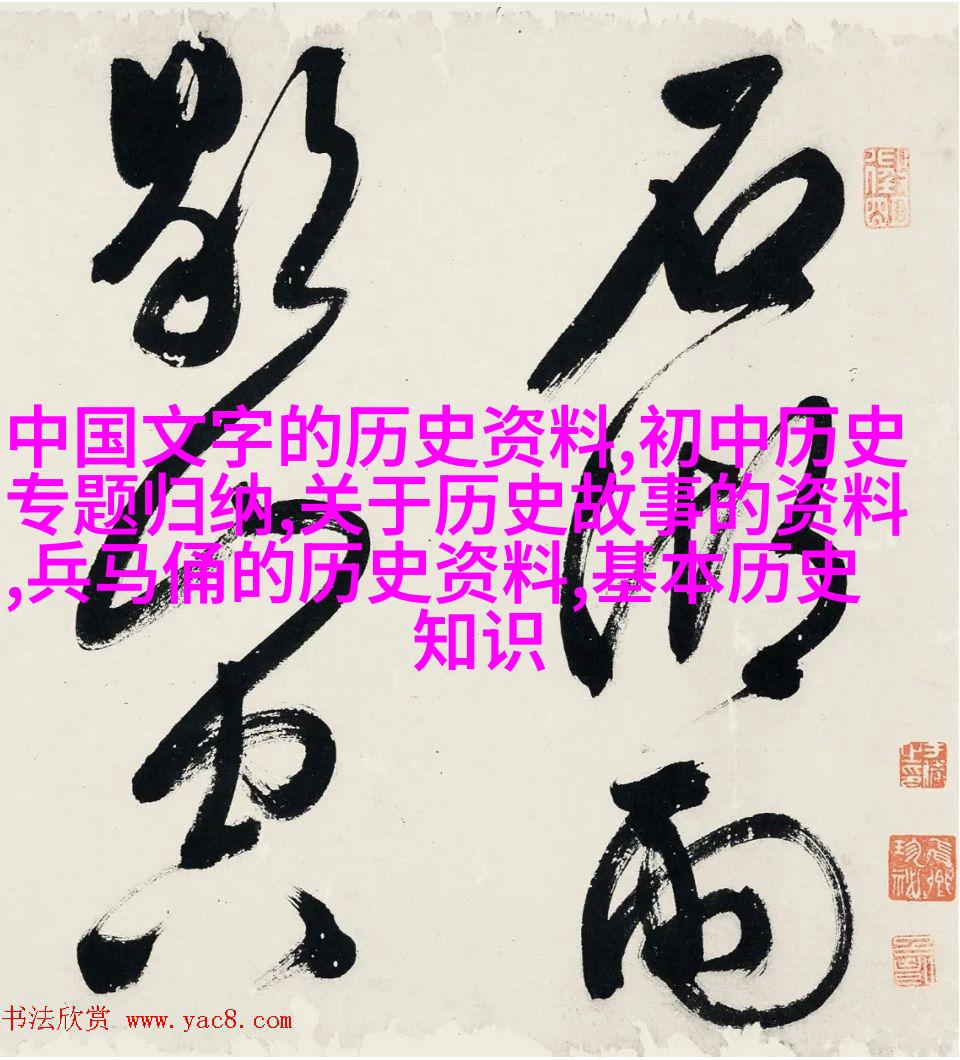 石湖雨
歇山空
中国文字的历史资料,初中历史
专题归纳,关于历史故事的资料
,兵马俑的历史资料,基本历史
知识
书法欣赏 www.yac8.com